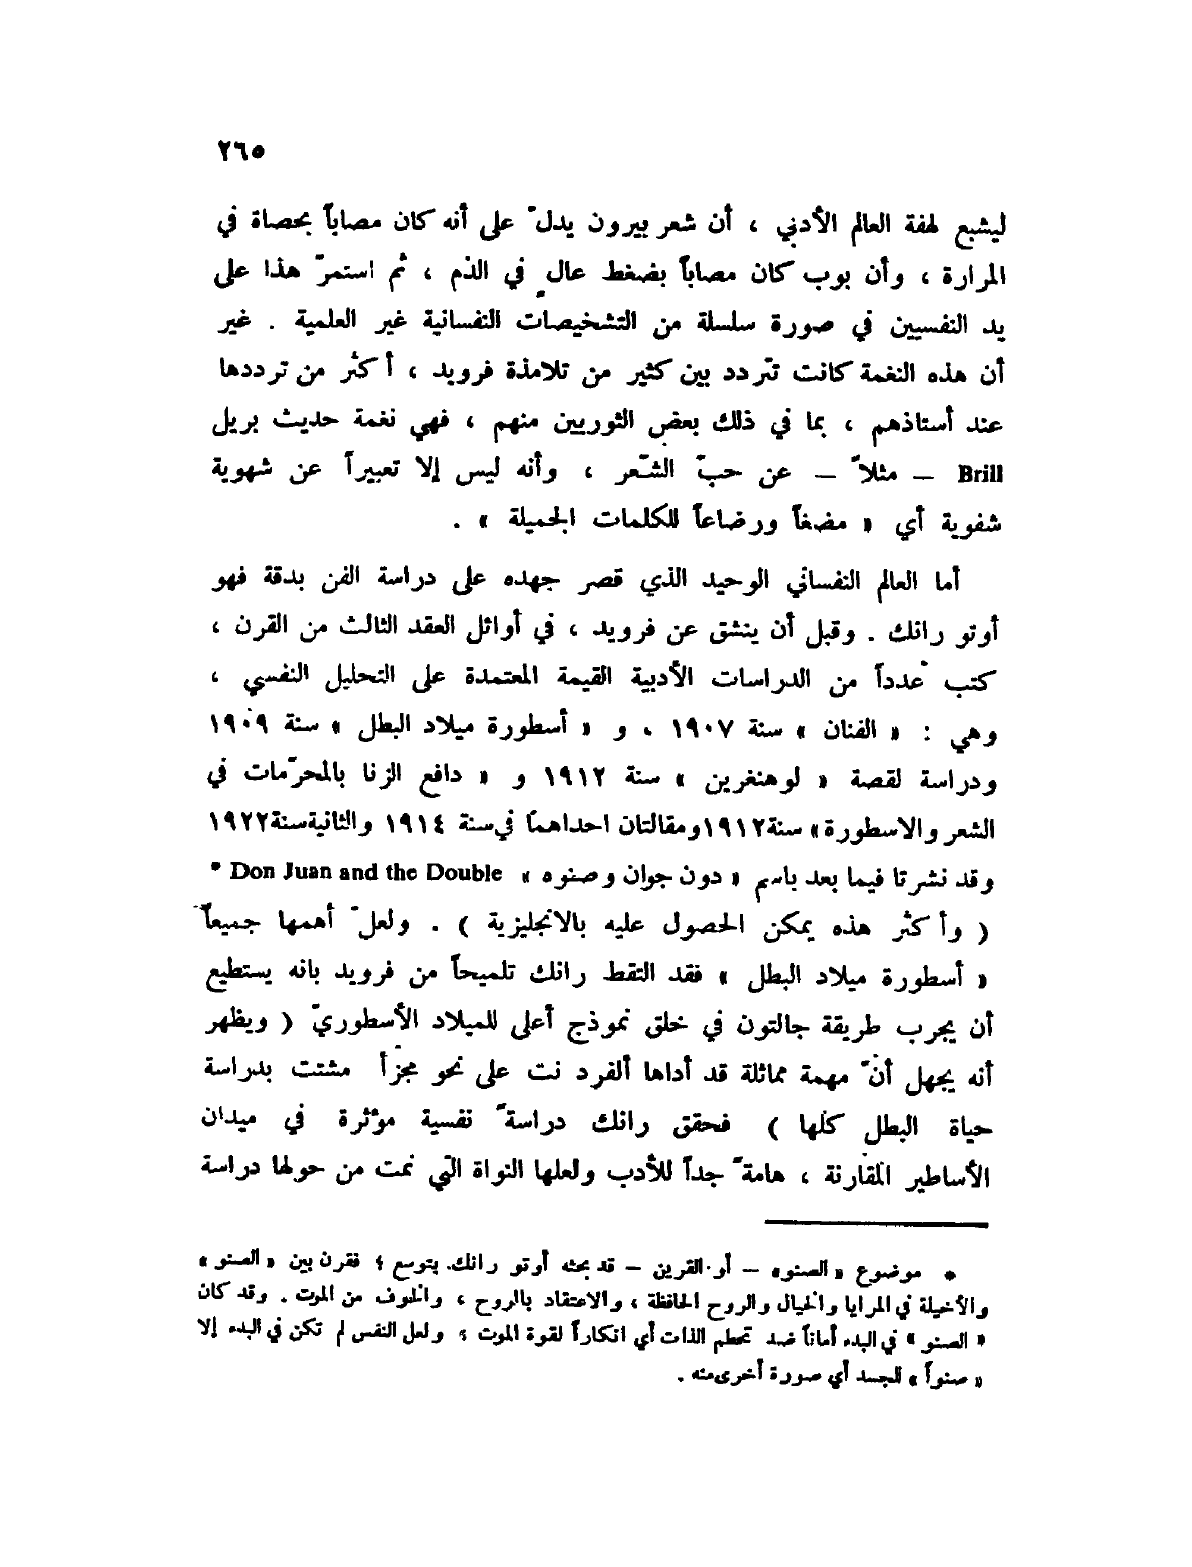 ٢٦٥
ليشبع لهفة العالم الأدبي ، أن شعر بيرون يدلّ على أنه كان مصاباً بحصاة في
المرارة ، وأن بوب كان مصاباً بضغط عالٍ في الدم ، ثم استمرّ هذا على
يد النفسيين في صورة سلسلة من التشخيصات النفسانية غير العلمية . غير
أن هذه النغمة كانت تتردد بين كثير من تلامذة فرويد ، أكثر من ترددها
عند أستاذهم ، بما في ذلك بعض الثوريين منهم ، فهي نغمة حديث بريل
Brill – مثلاً – عن حبّ الشعر ، وأنه ليس إلا تعبيراً عن شهوية
شفوية أي « مضغاً ورضاعاً للكلمات الجميلة » .
أما العالم النفساني الوحيد الذي قصر جهده على دراسة الفن بدقة فهو
أوتو رانك . وقبل أن ينشق عن فرويد ، في أوائل العقد الثالث من القرن ،
كتب عدداً من الدراسات الأدبية القيمة المعتمدة على التحليل النفسي ،
وهي : « الفنان » سنة ١٩٠٧ ، و « أسطورة ميلاد البطل » سنة ١٩٠٩
ودراسة لقصة « لوهنغرين » سنة ١٩١٢ و « دافع الزنا بالمحرّمات في
الشعر والاسطورة» سنة١٩١٢ومقالتان احداهما في سنة ١٩١٤ والثانيةسنة١٩٢٢
وقد نشرتا فيما بعد باسم « دون جوان وصنوه » Don Juan and the Double *
( وأكثر هذه يمكن الحصول عليه بالانجليزية ) . ولعلّ أهمها جميعاً
« أسطورة ميلاد البطل » فقد التقط رانك تلميحاً من فرويد بانه يستطيع
أن يجرب طريقة جالتون في خلق نموذج أعلى للميلاد الأسطوريّ ( ويظهر
أنه يجهل أنّ مهمة مماثلة قد أداها ألفرد نت على نحو مجزّأ مشتت بدراسة
حياة البطل كلها ) فحقق رانك دراسةً نفسية مؤثرة في ميدان
الأساطير المقارنة ، هامةً جداً للأدب ولعلها النواة التي نمت من حولها دراسة
* موضوع «الصنو» – أو القرين – قد بحثه أوتو رانك. بتوسع ؛ فقرن بين «الصنو»
والأخيلة في المرايا والخيال والروح الحافظة ، والاعتقاد بالروح ، والخوف من الموت . وقد كان
« الصنو » في البدء أماناً ضد تحطم الذات أي انكاراً لقوة الموت ؛ ولعل النفس لم تكن في البدء إلا
« صنواً » للجسد أي صورة أخرى منه .